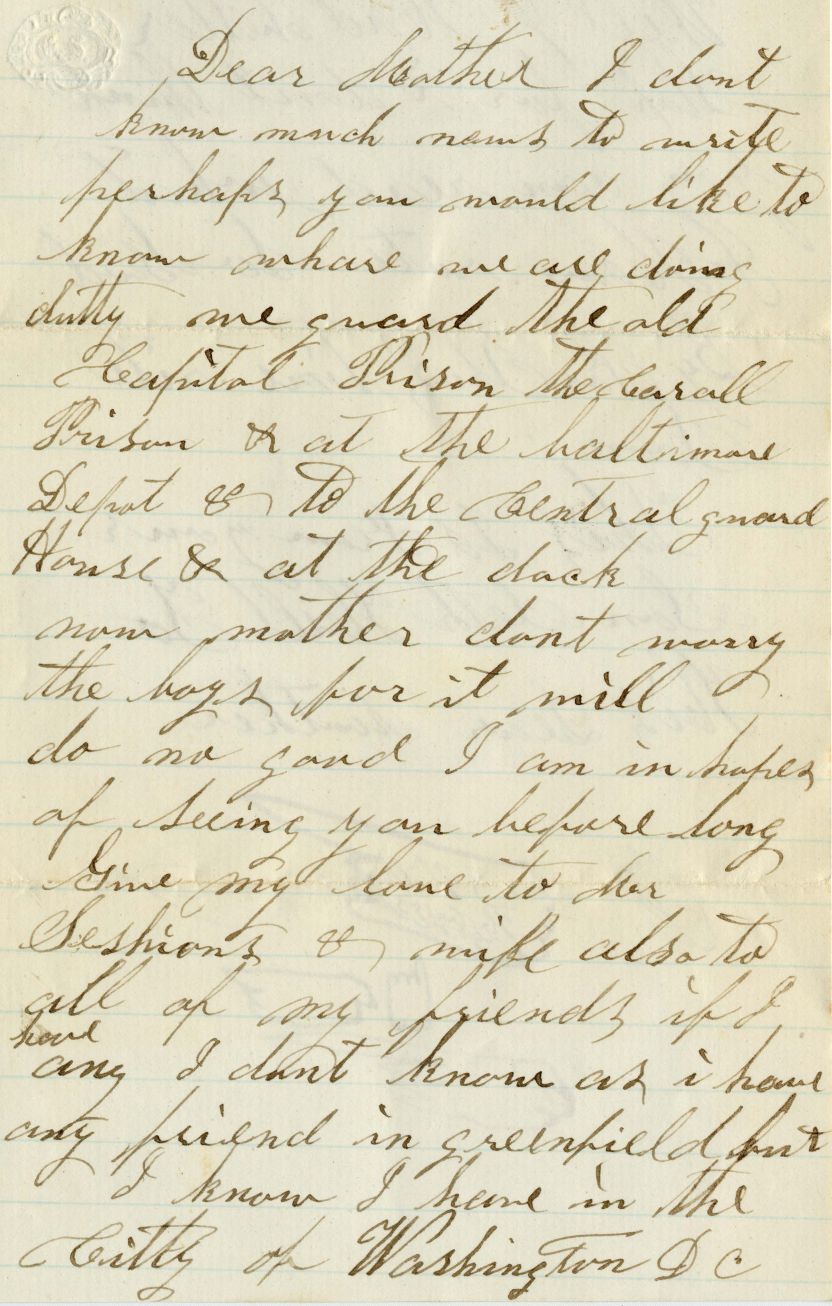 Dear Mother I dont
know much news to write
perhaps you would like to
know whare we are doing
dutty we guard the old
Capitol Prison the Carall
Prison & at the baltimore
Depot & to the Central guard
House & at the dock
now mother dont worry
the boys for it will
do no good I am in hopes
of seeing you before long
Give my love to Mr
Seshions & wife also to
all of my friends if I
have
any I dont know as i have
any friend in greenfield but
I know I have in the
Citty of Washington D C